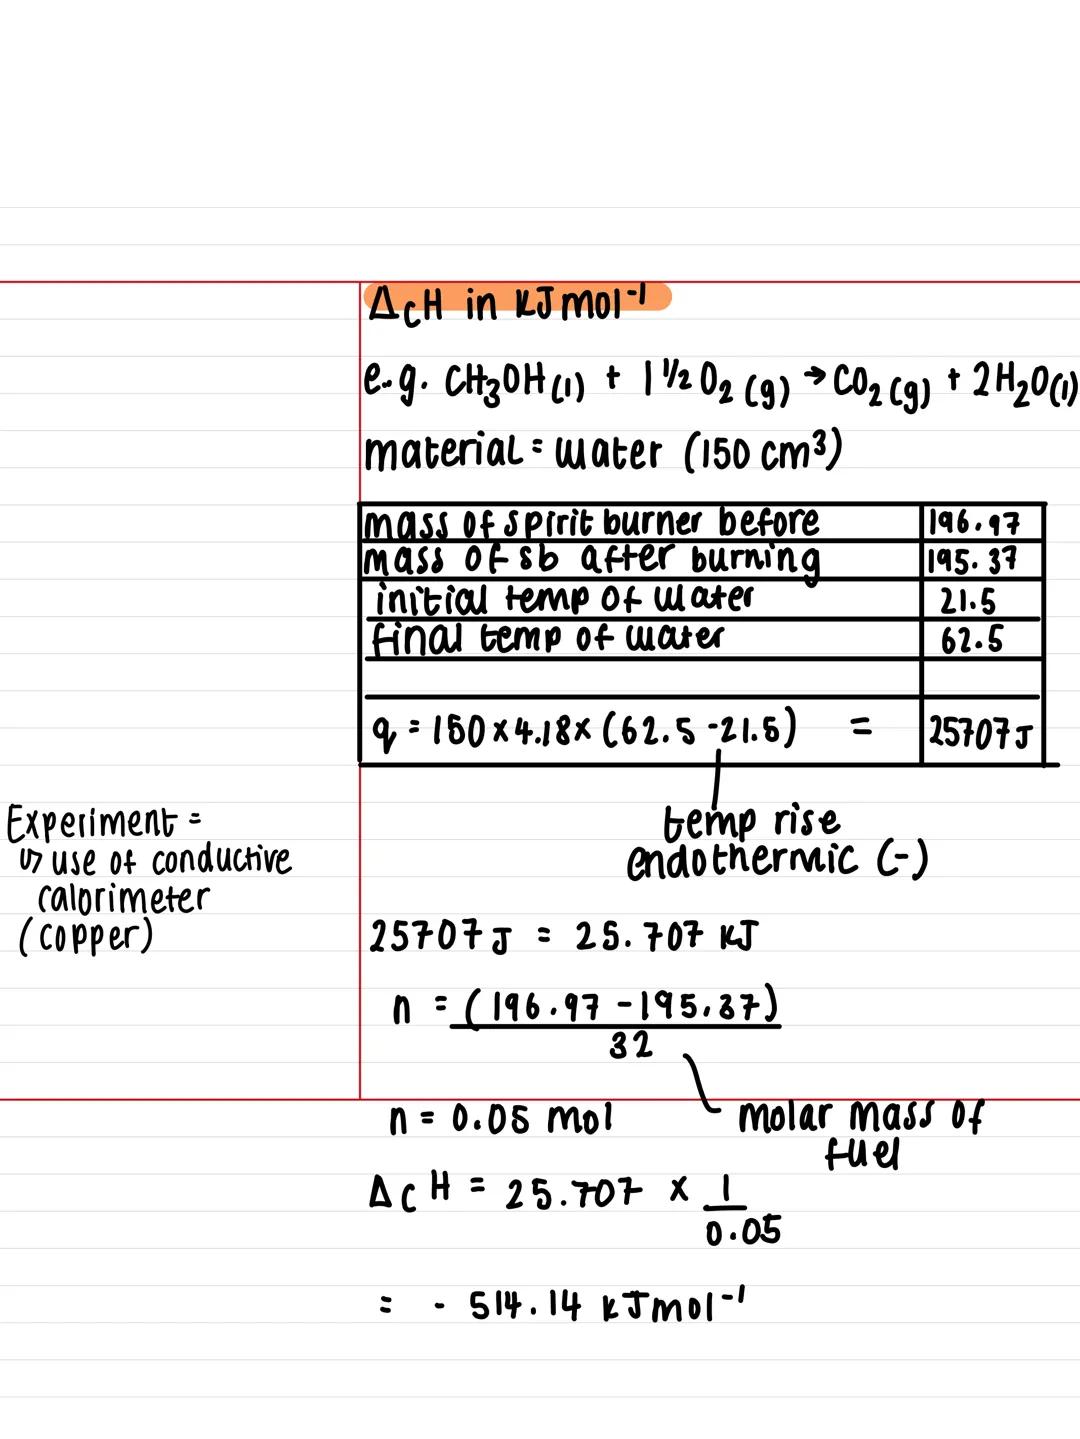 ΔcH in KJmol⁻¹
e.g. CH₃OH(l) + 1½O₂(g) → CO₂(g) + 2H₂O(l)
material = water (150 cm³)
mass of spirit burner before 196.97
mass of sb after burning 195.37
initial temp of water 21.5
final temp of water 62.5
q = 150 × 4.18 × (62.5 - 21.5) = 25707 J
temp rise
endothermic (-)
Experiment =
↳ use of conductive
calorimeter
(copper)
25707 J = 25.707 KJ
n = (196.97 - 195.37)
32
n = 0.05 mol
molar mass of
fuel
ΔcH = 25.707 × 1
0.05
= - 514.14 kJmol⁻¹